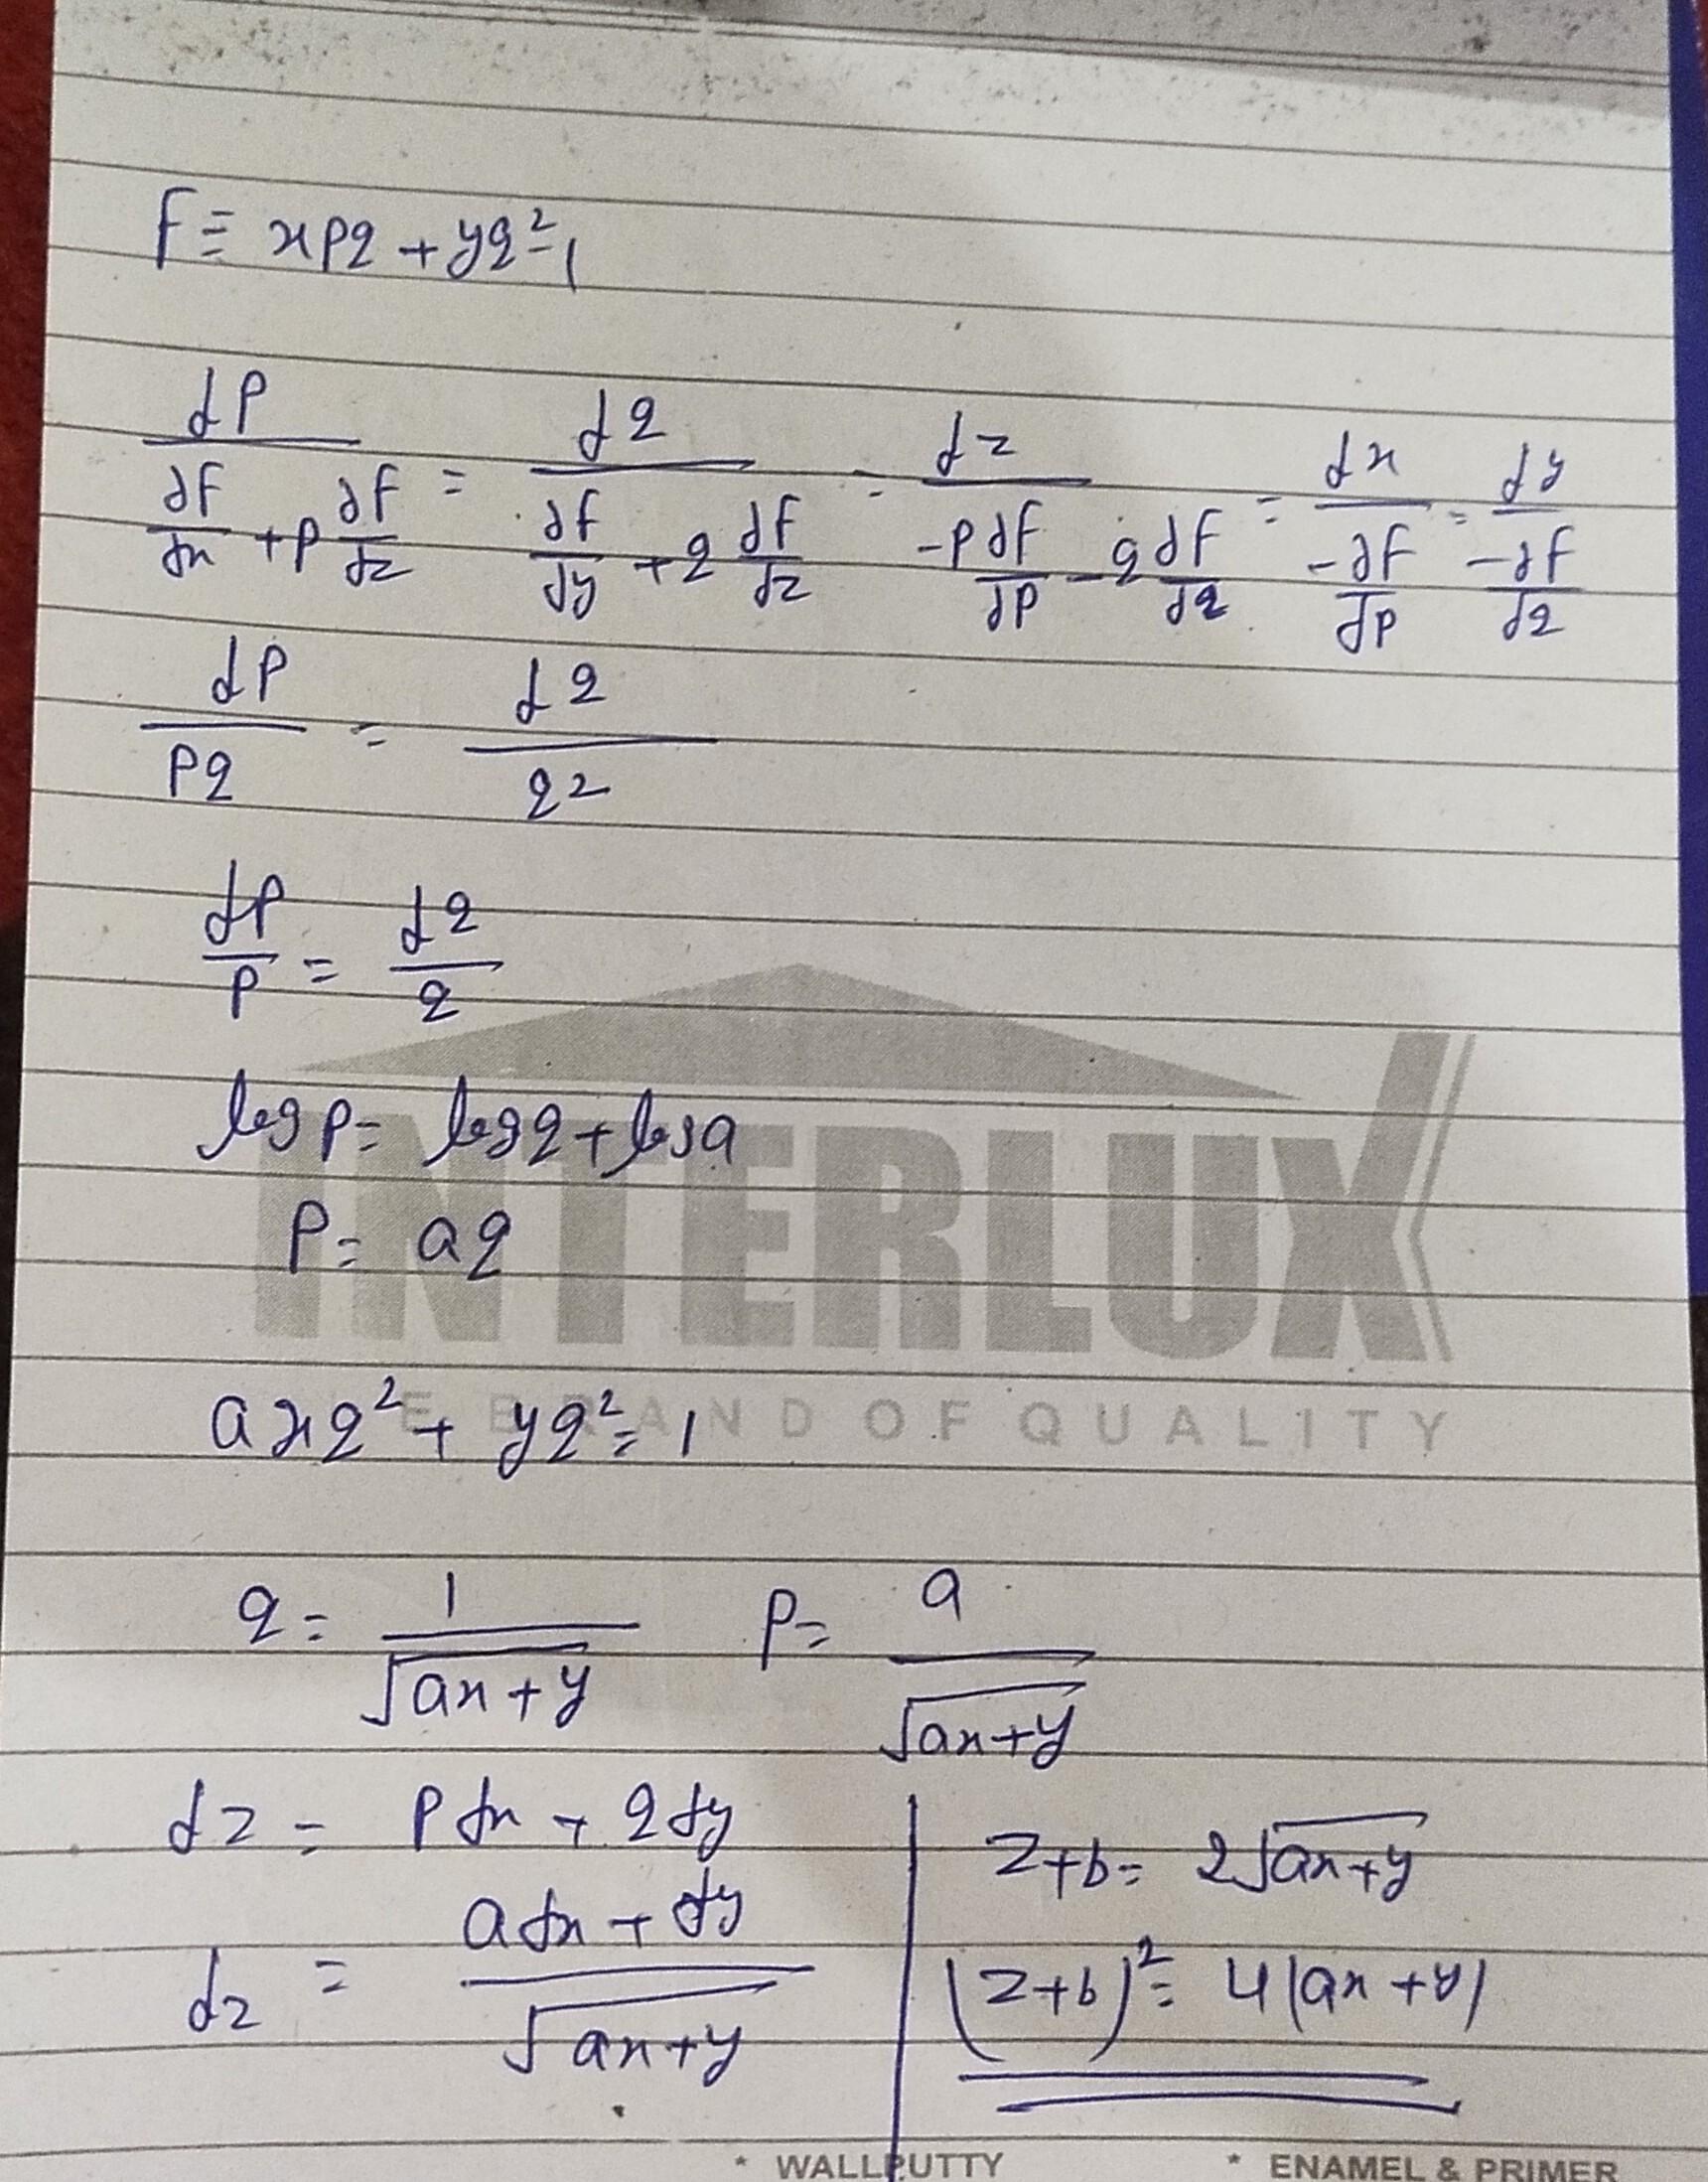 F ≡ xpq + yq² - 1
dp/(∂F/∂x + p ∂F/∂z) = dq/(∂F/∂y + q ∂F/∂z) = dz/(-p ∂F/∂p - q ∂F/∂q) = dx/(-∂F/∂p) = dy/(-∂F/∂q)
dp/pq = dq/q²
dp/p = dq/q
log p = log q + log a
INTERLUX
p = aq
axq² + yq² = 1
E BRAND OF QUALITY
q = 1/√(ax+y) p = a/√(ax+y)
dz = pdx + qdy
dz = (adx + dy)/√(ax+y)
z+b = 2√(ax+y)
(z+b)² = 4(ax+y)
* WALLPUTTY * ENAMEL & PRIMER